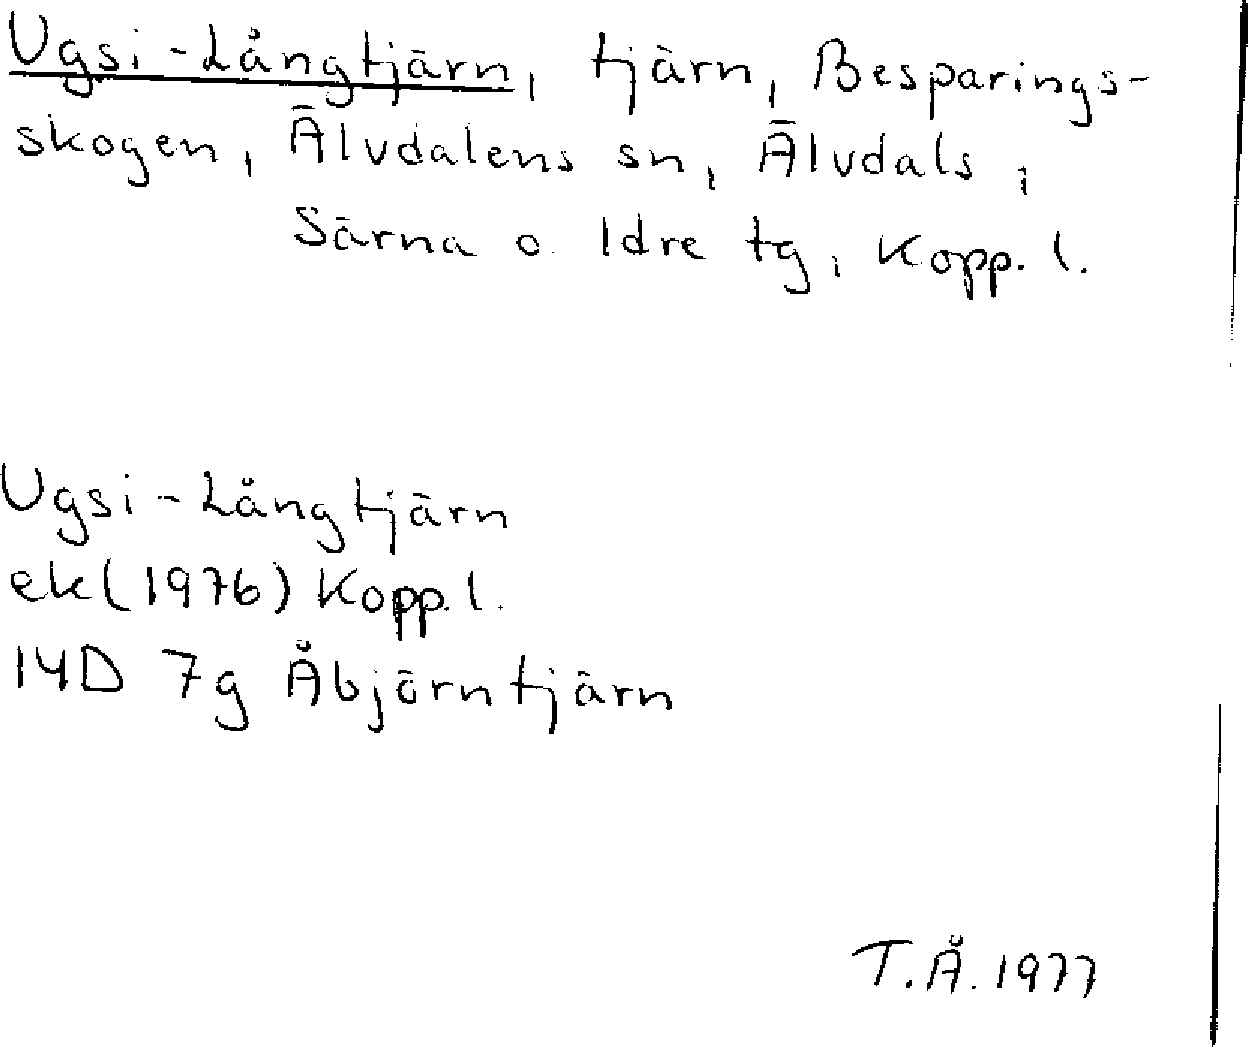 Ugsi-Långtjärn, tjärn, Besparings-
skogen, Älvdalens sn, Älvdals,
Särna o. Idre tg, Kopp. l.
Ugsi-Långtjärn
ek(1976) Kopp. l.
14D 7g Åbjörntjärn
T.Å. 1977